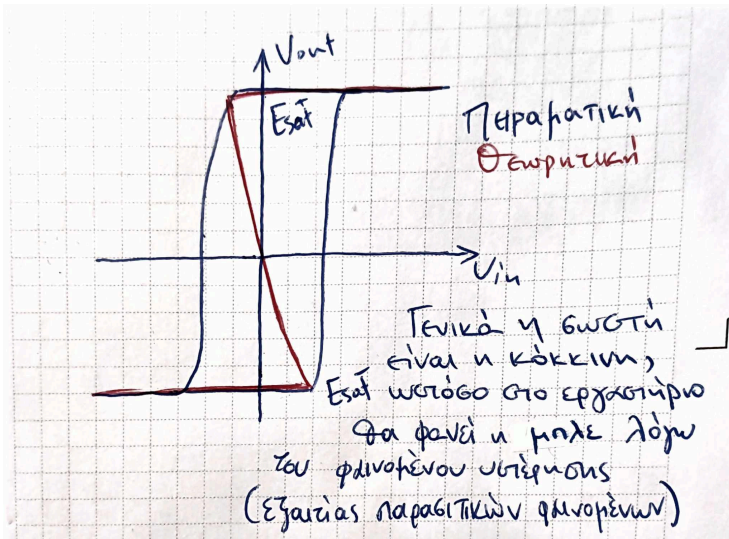 Vout
Esat
Πειραματική
Θεωρητική
Vin
Γενικά η σωστή
είναι η κόκκινη,
Esat ωστόσο στο εργαστήριο
θα φανεί η μπλε λόγω
του φαινομένου υστέρησης
(εξαιτίας παρασιτικών φαινομένων)